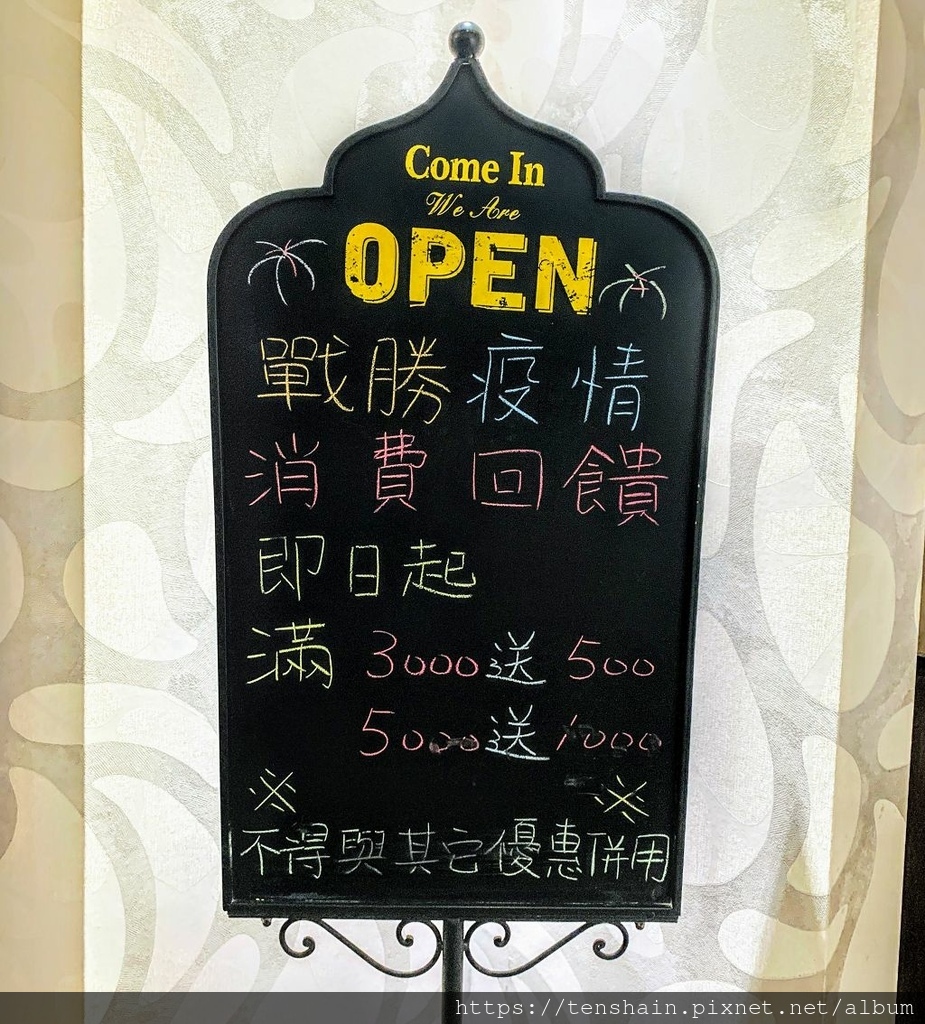 Come In
We Are
OPEN
戰勝疫情
消費回饋
即日起
滿 3000送 500
5000送 1000
※ ※
不得與其它優惠併用
https://tenshain.pixnet.net/album